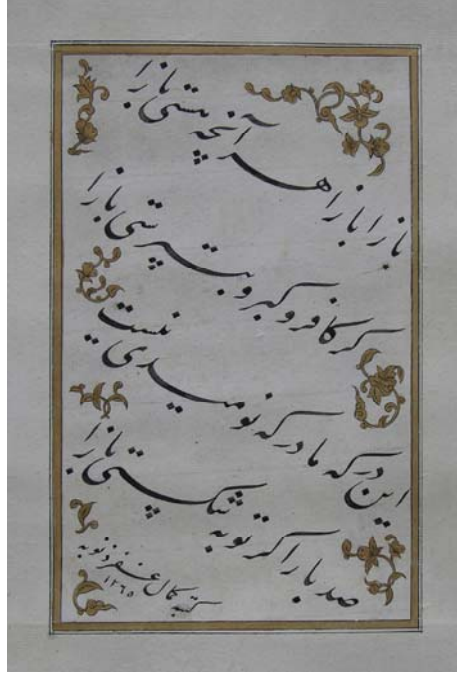 باز آ باز آ هر آنچه هستی باز آ
گر کافر و گبر و بت پرستی باز آ
این درگه ما درگه نومیدی نیست
صد بار اگر توبه شکستی باز آ
کتبه کمال غفر ذنوبه
۱۲٦۵